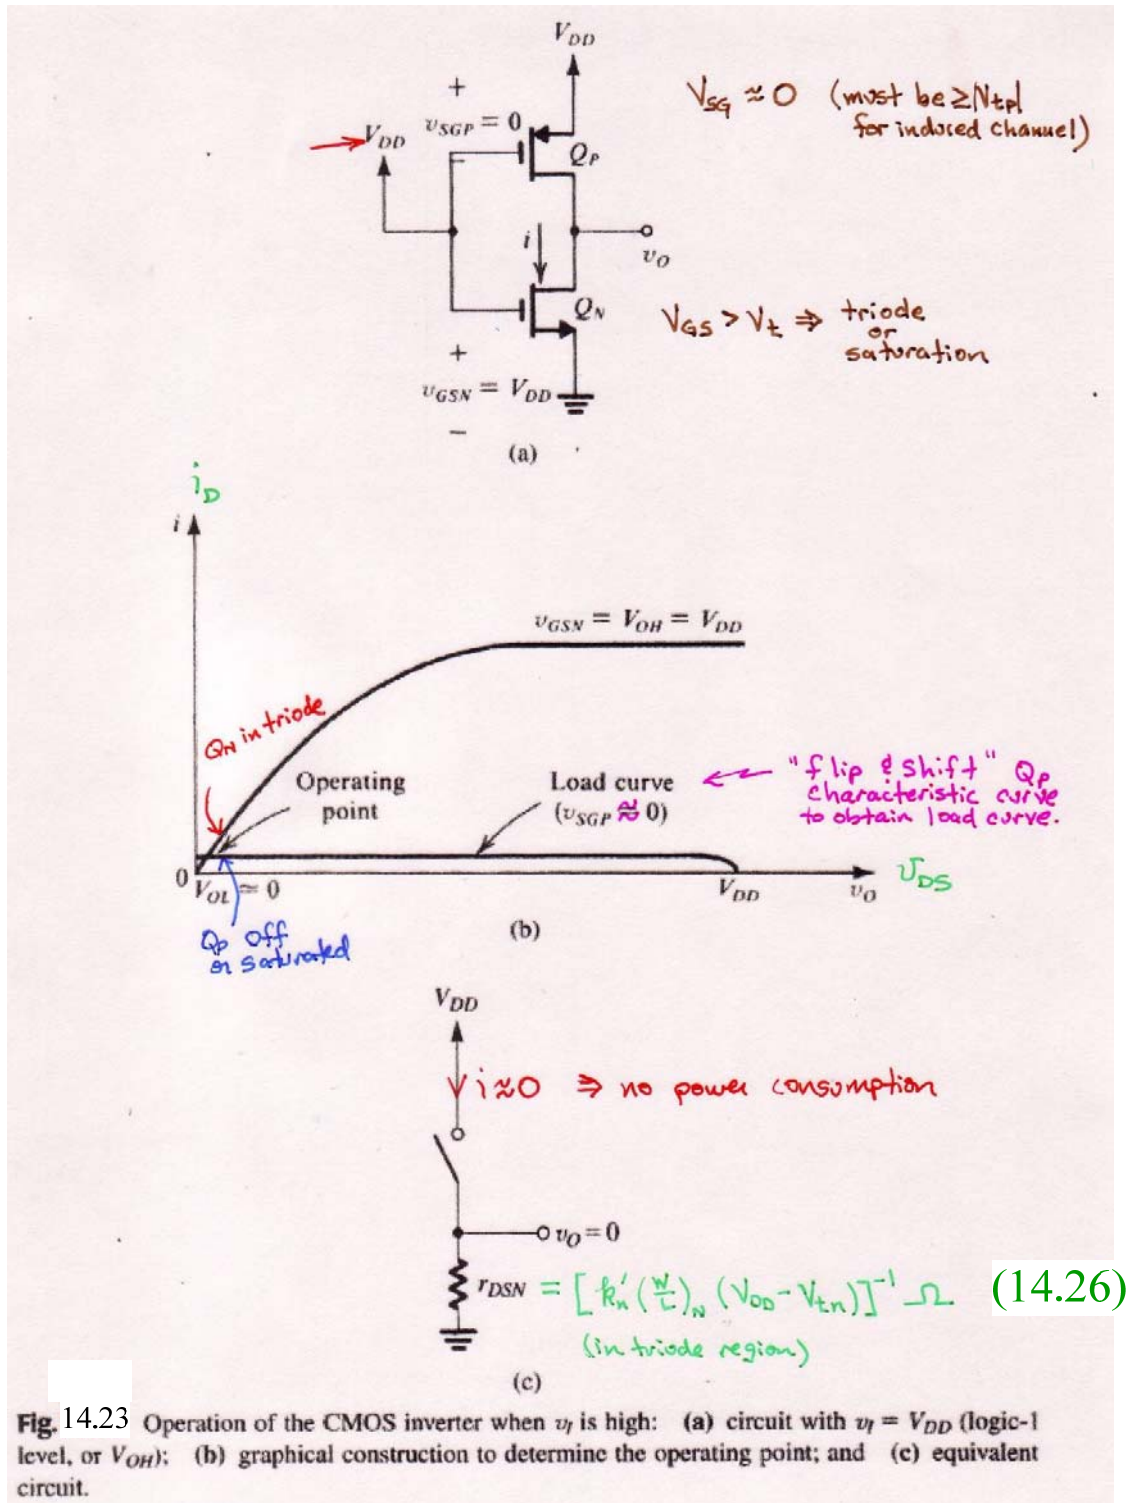 V_DD
+
v_SGP = 0
V_DD
Q_P
V_SG ≈ 0 (must be ≥ |V_tp|
for induced channel)
i
v_O
Q_N
V_GS > V_t ⇒ triode
or
saturation
+
v_GSN = V_DD
−
(a)
i_D
i
v_GSN = V_OH = V_DD
Q_N in triode
Operating
point
Load curve
(v_SGP ≈ 0)
"flip & shift" Q_P
characteristic curve
to obtain load curve.
0
V_OL ≃ 0
V_DD
v_O
v_DS
Q_P off
or saturated
(b)
V_DD
i ≈ 0 ⇒ no power consumption
v_O = 0
r_DSN = [k_n' (W/L)_N (V_DD - V_tn)]^-1 Ω (14.26)
(in triode region)
(c)
Fig. 14.23 Operation of the CMOS inverter when v_I is high: (a) circuit with v_I = V_DD (logic-1
level, or V_OH); (b) graphical construction to determine the operating point; and (c) equivalent
circuit.